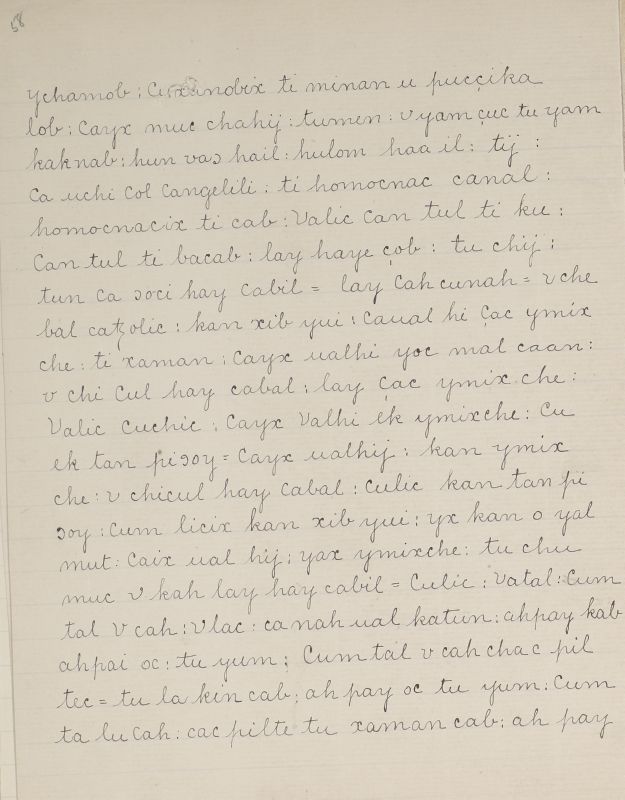 58
ychamob : Cuxanobix ti minan u pucçika
lob : Cayx muc chahij : tumen : v yam çuc tu yam
kaknab : hun vaɔ hail : hulom haa il : tij :
Ca uchi Col Cangelili : ti homocnac canal :
homocnacix ti cab : Valic Can tul ti ku :
Can tul ti bacab : lay haye çob : tu chij :
tun Ca ɔoci hay Cabil = lay Cah cunah = v che
bal catzolic : kan xib yui : Caual hi Çac ymix
che : ti xaman : Cayx ualhi yoc mal caan :
v chi Cul hay cabal : lay Çac ymix che :
Valic Cuchic : Cayx Valhi ek ymixche : Cu
ek tan piɔoy = Cayx ualhij : kan ymix
che : v chicul hay Cabal : Culic kan tan pi
ɔoy : Cum licix kan xib yui : yx kan o yal
mut : Caix ual hij : yax ymixche : tu chu
muc v kah lay hay cabil = Culic : Vatal : Cum
tal v cah : v lac : ca nah ual katun : ahpay kab
ahpai oc : tu yum : Cum tal v cah cha c pil
tec = tu la kin cab : ah pay oc tu yum : Cum
ta lu Cah : cac pilte tu xaman cab : ah pay